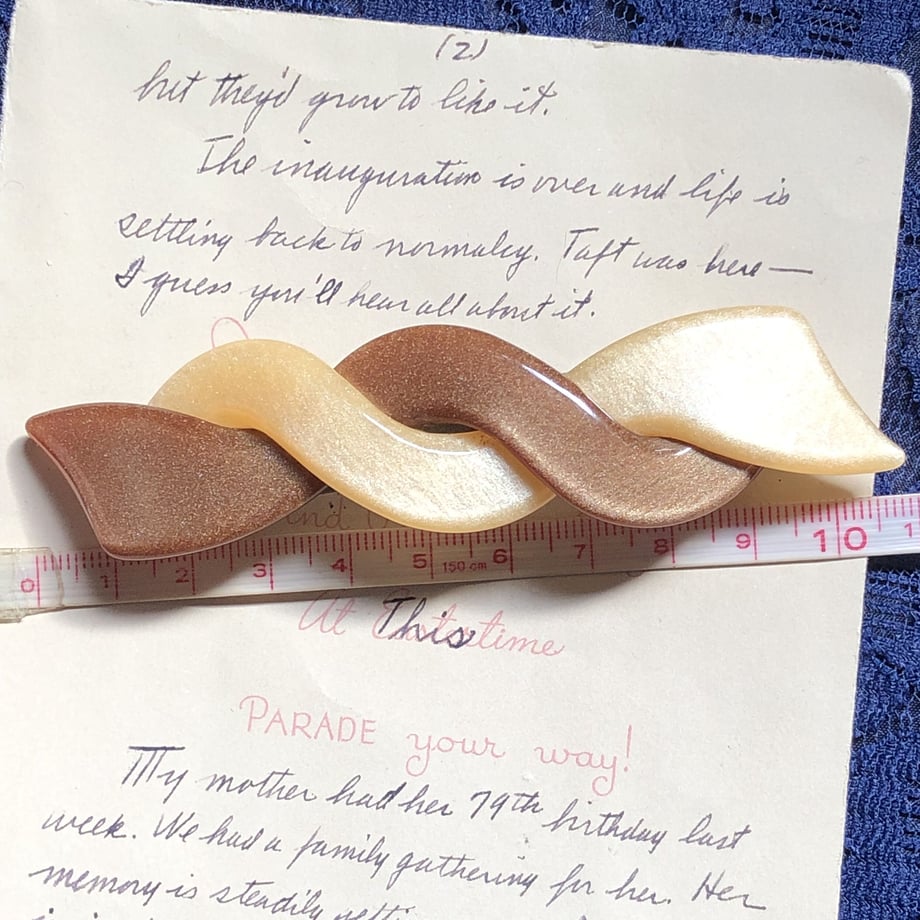 (2)
but they'd grow to like it.
The inauguration is over and life is
settling back to normalcy. Taft was here—
I guess you'll hear all about it.
0 1 2 3 4 5 150 cm 6 7 8 9 10
At Eastertime
This
PARADE your way!
My mother had her 79th birthday last
week. We had a family gathering for her. Her
memory is steadily